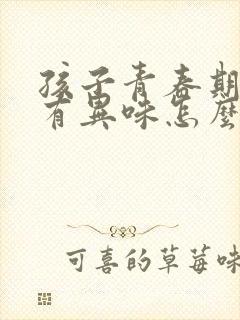 孩子青春期
有異味怎麼
可喜的草莓味